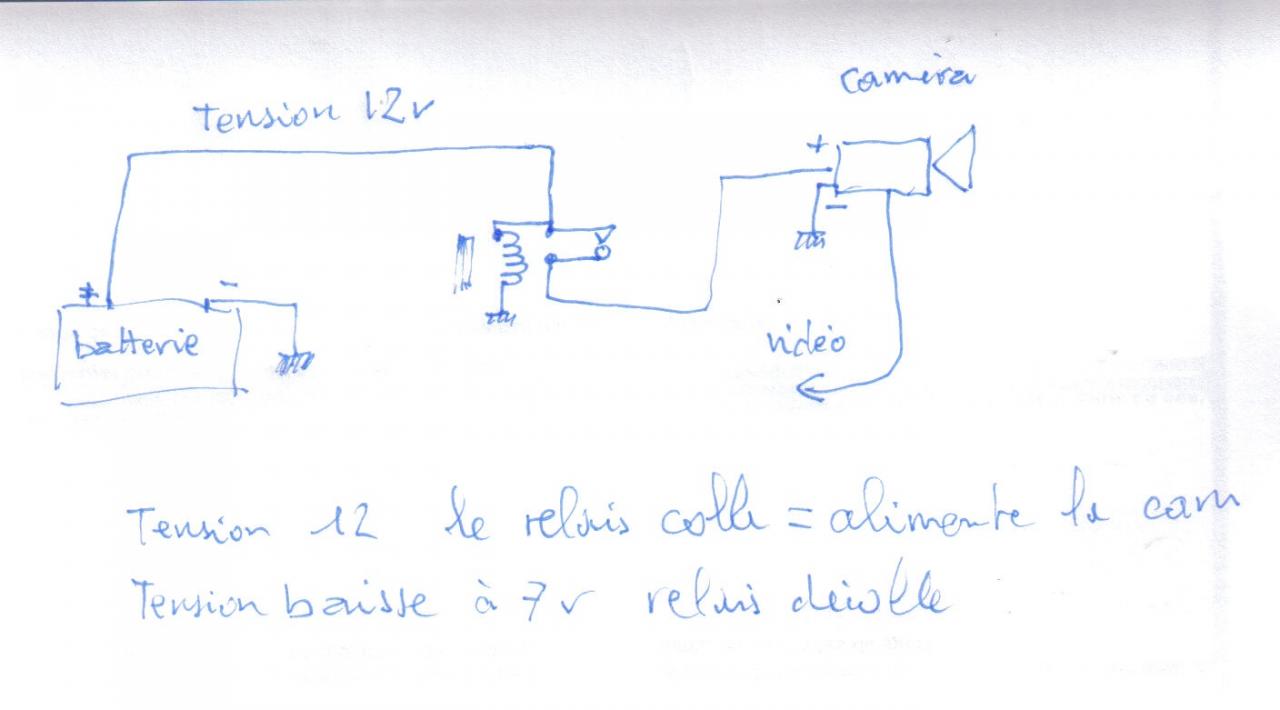 caméra
tension 12v
+
-
+
-
batterie
vidéo
Tension 12 le relais colle = alimente la cam
Tension baisse à 7v relais décolle